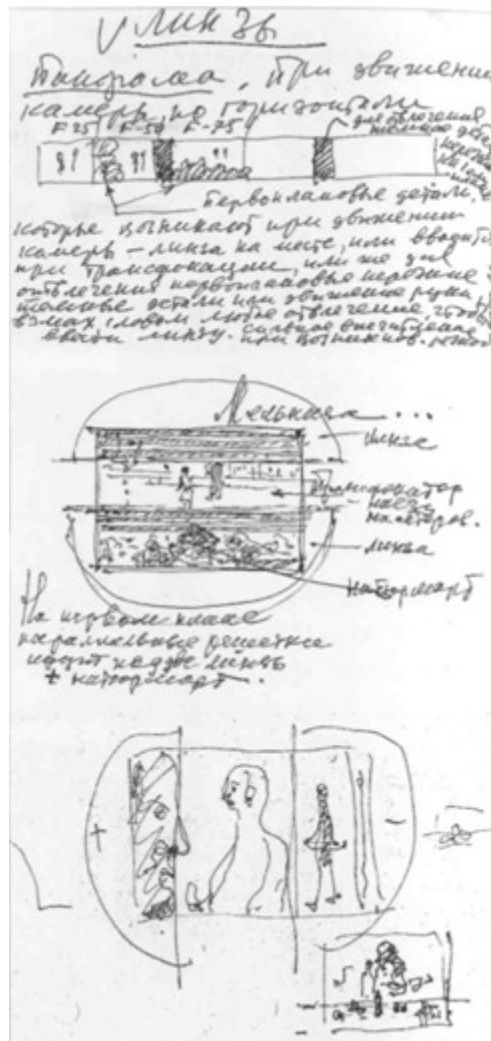 √ Линзы
Панорама, при движении
камеры по горизонтали
F25 F-50 F-75
для отвлечения
темное
Первоплановые детали,
которые возникают при движении
камеры – линза на месте, или вводится
при трансфокации, или же для
отвлечения первоплановые
темные детали или движение руки,
взмах, словом любое отвлечение, чтобы
ввести линзу. сильное впечатление
при возникнов.
Мельница...
линза
Трансфокатор
метров.
линза
натюрморт
На первом плане
параллельные решетки
идут на две линзы
+ натюрморт.
+
–